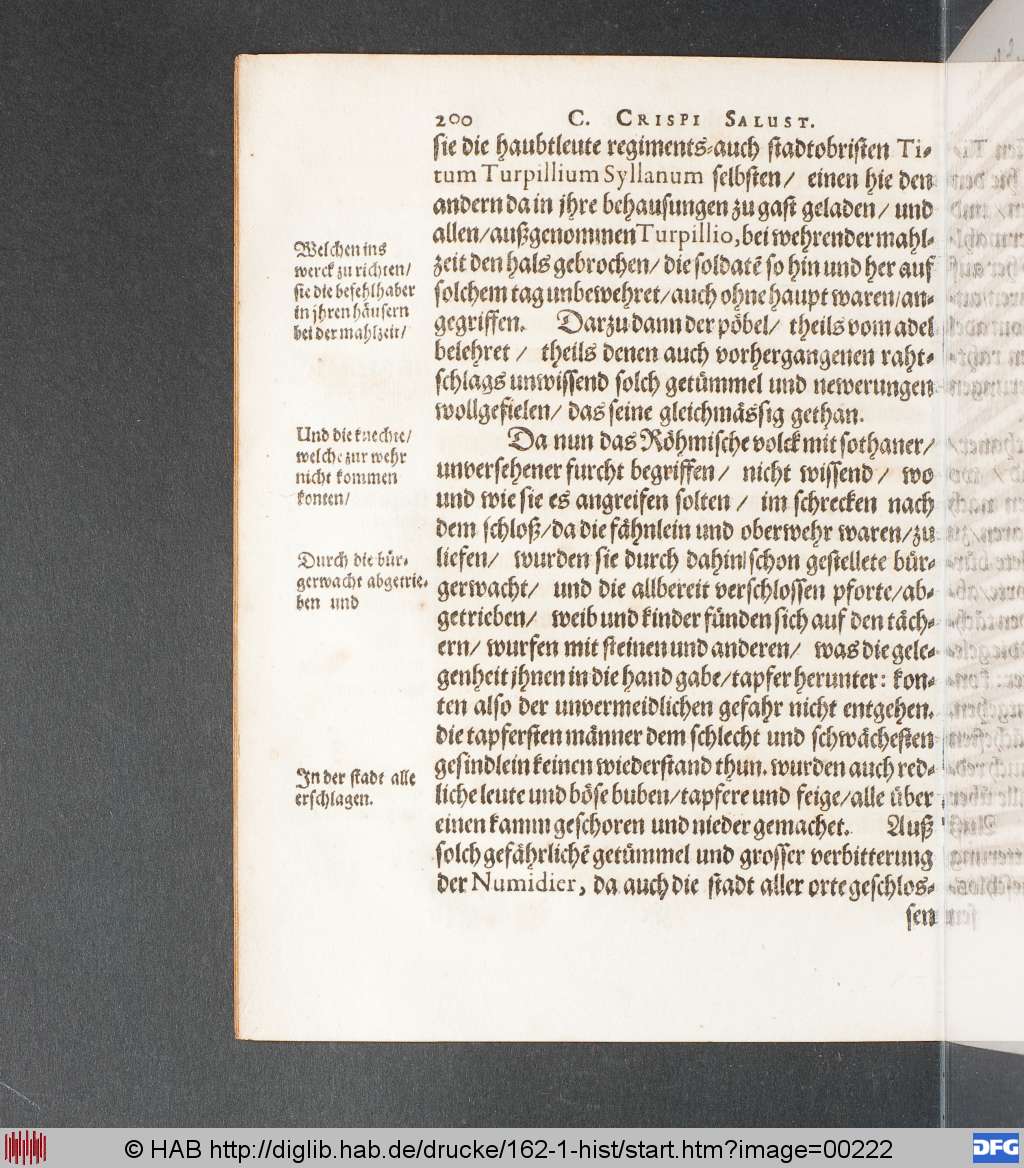 200 C. CRISPI SALUST.
sie die haubtleute regiments-auch stadtobristen Ti-
tum Turpillium Syllanum selbsten/ einen hie den
andern da in jhre behausungen zu gast geladen/ und
allen/außgenommen Turpillio, bei wehrender mahl-
zeit den hals gebrochen/ die soldatẽ so hin und her auf
solchem tag unbewehret/auch ohne haupt waren/an-
gegriffen. Darzu dann der pöbel/ theils vom adel
belehret/ theils denen auch vorhergangenen raht-
schlags unwissend solch getümmel und newerungen
wollgefielen/ das seine gleichmässig gethan.
Welchen ins
werck zu richten/
sie die befehlhaber
in jhren häusern
bei der mahlzeit/
Da nun das Röhmische volck mit sothaner/
unversehener furcht begriffen/ nicht wissend/ wo
und wie sie es angreifen solten/ im schrecken nach
dem schloß/da die fähnlein und oberwehr waren/zu
liefen/ wurden sie durch dahin schon gestellete bür-
gerwacht/ und die allbereit verschlossen pforte/ab-
getrieben/ weib und kinder fünden sich auf den täch-
ern/ wurfen mit steinen und anderen/ was die gele-
genheit jhnen in die hand gabe/tapfer herunter: kon-
ten also der unvermeidlichen gefahr nicht entgehen.
die tapfersten männer dem schlecht und schwächesten
gesindlein keinen wiederstand thun. wurden auch red-
liche leute und böse buben/tapfere und feige/alle über
einen kamm geschoren und nieder gemachet. Auß
solch gefährlichẽ getümmel und grosser verbitterung
der Numidier, da auch die stadt aller orte geschlos-
sen
Und die knechte/
welche zur wehr
nicht kommen
konten/
Durch die bür-
gerwacht abgetrie-
ben und
In der stadt alle
erschlagen.
© HAB http://diglib.hab.de/drucke/162-1-hist/start.htm?image=00222
DFG